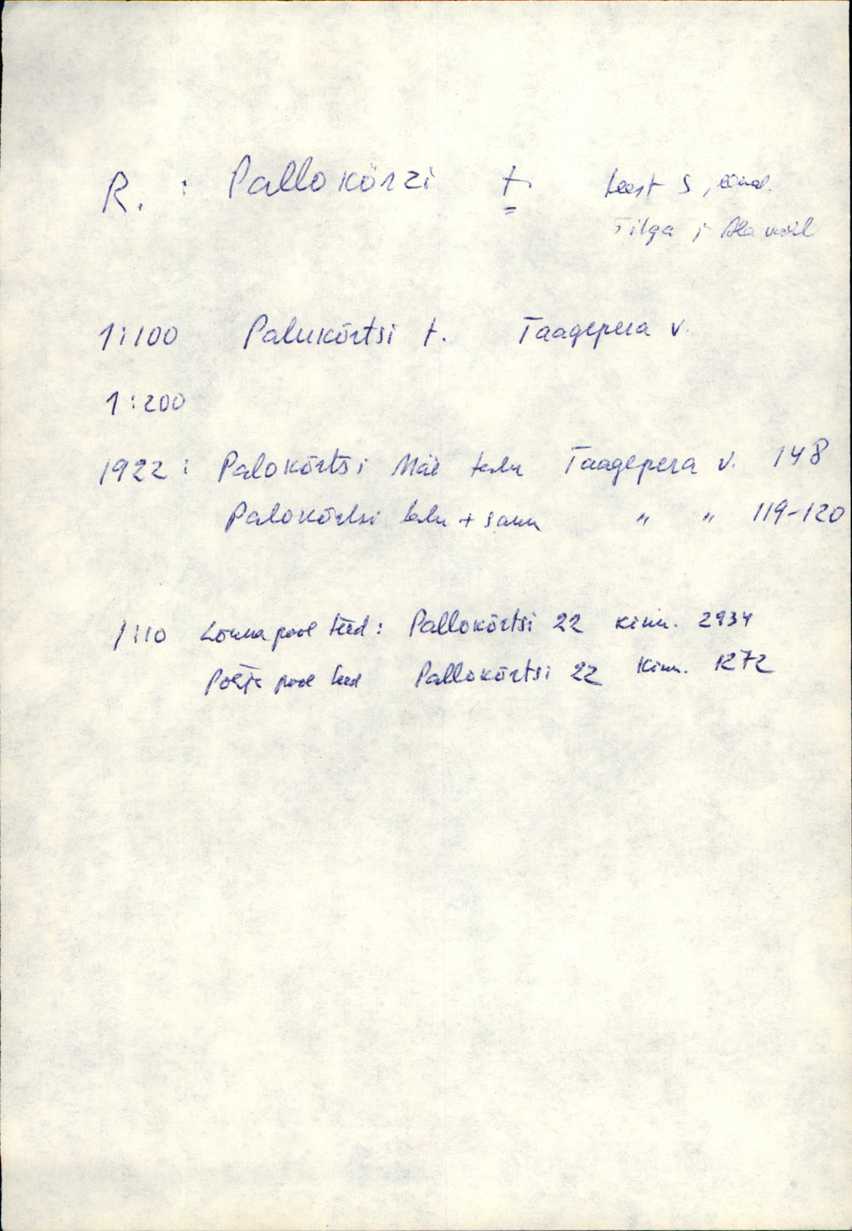 R. : Pallokõrzi t.
Tilga j
1:100 Palukõrtsi t. Taagepera v.
1:200
1922 : Palokõrtsi Mäe talu Taagepera v. 148
Palokõrtsi talu + saun " " 119-120
1:10 Lõuna pool teed : Pallokõrtsi 22 kinn. 2934
Põhja pool teed Pallokõrtsi 22 kinn. 1272